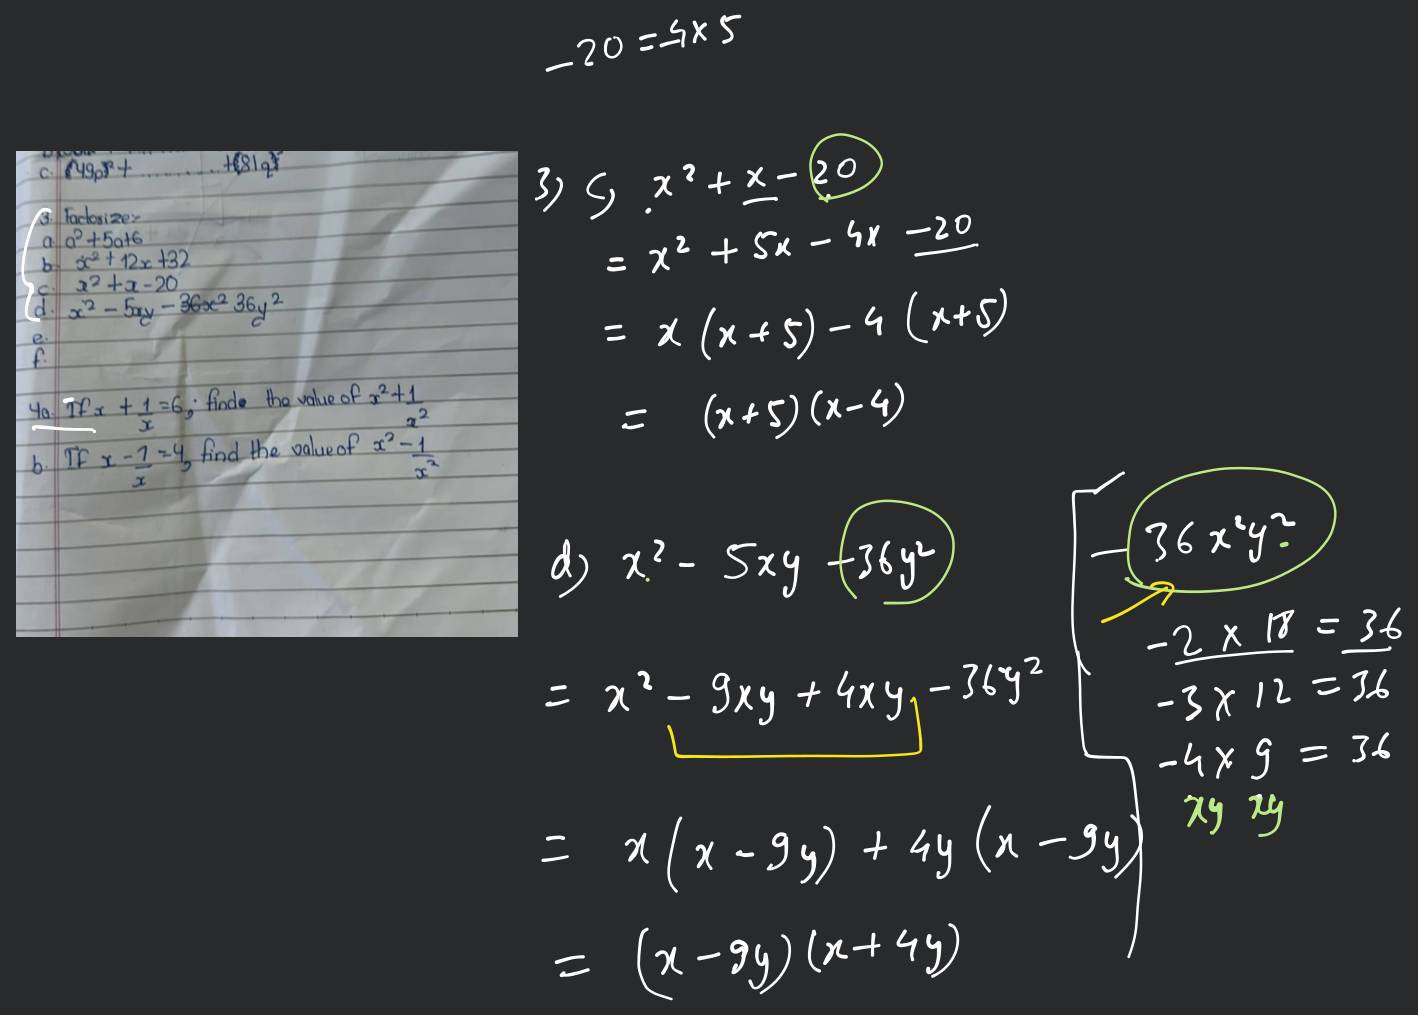 -20 = -4 x 5
c. (49p)² + .............. + (81q)²
3. Factorize:-
a. a² + 5a + 6
b. x² + 12x + 32
c. x² + x - 20
d. x² - 5xy - 36x² 36y²
e.
f.
4a. If x + 1/x = 6, finde the value of x² + 1/x²
b. If x - 1/x = 4, find the value of x² - 1/x²
3) c) x² + x - 20
= x² + 5x - 4x - 20
= x (x + 5) - 4 (x + 5)
= (x + 5) (x - 4)
d) x² - 5xy - 36y²
= x² - 9xy + 4xy - 36y²
= x (x - 9y) + 4y (x - 9y)
= (x - 9y) (x + 4y)
- 36x²y²
-2 x 18 = 36
-3 x 12 = 36
-4 x 9 = 36
xy xy